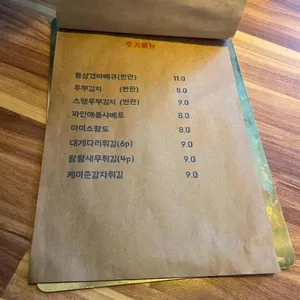 추가메뉴
통삼겹바베큐(반판) 11.0
두부김치 (반판) 8.0
스팸두부김치 (반판) 9.0
파인애플샤베트 8.0
아이스황도 8.0
대게다리튀김(6p) 9.0
왕왕새우튀김(4p) 9.0
케이준감자튀김 9.0